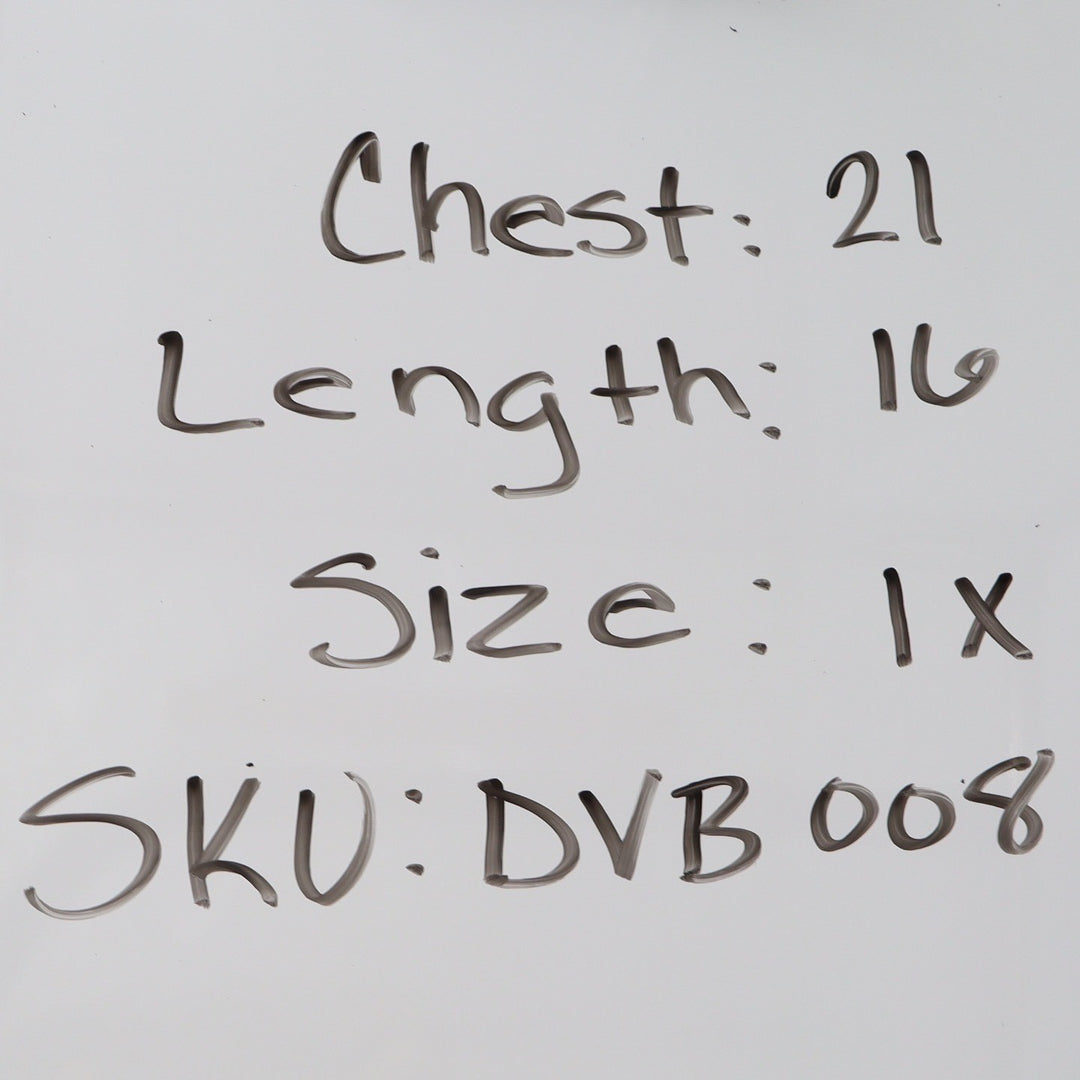 Chest: 21
Length: 16
Size: 1X
SKU: DVB 008